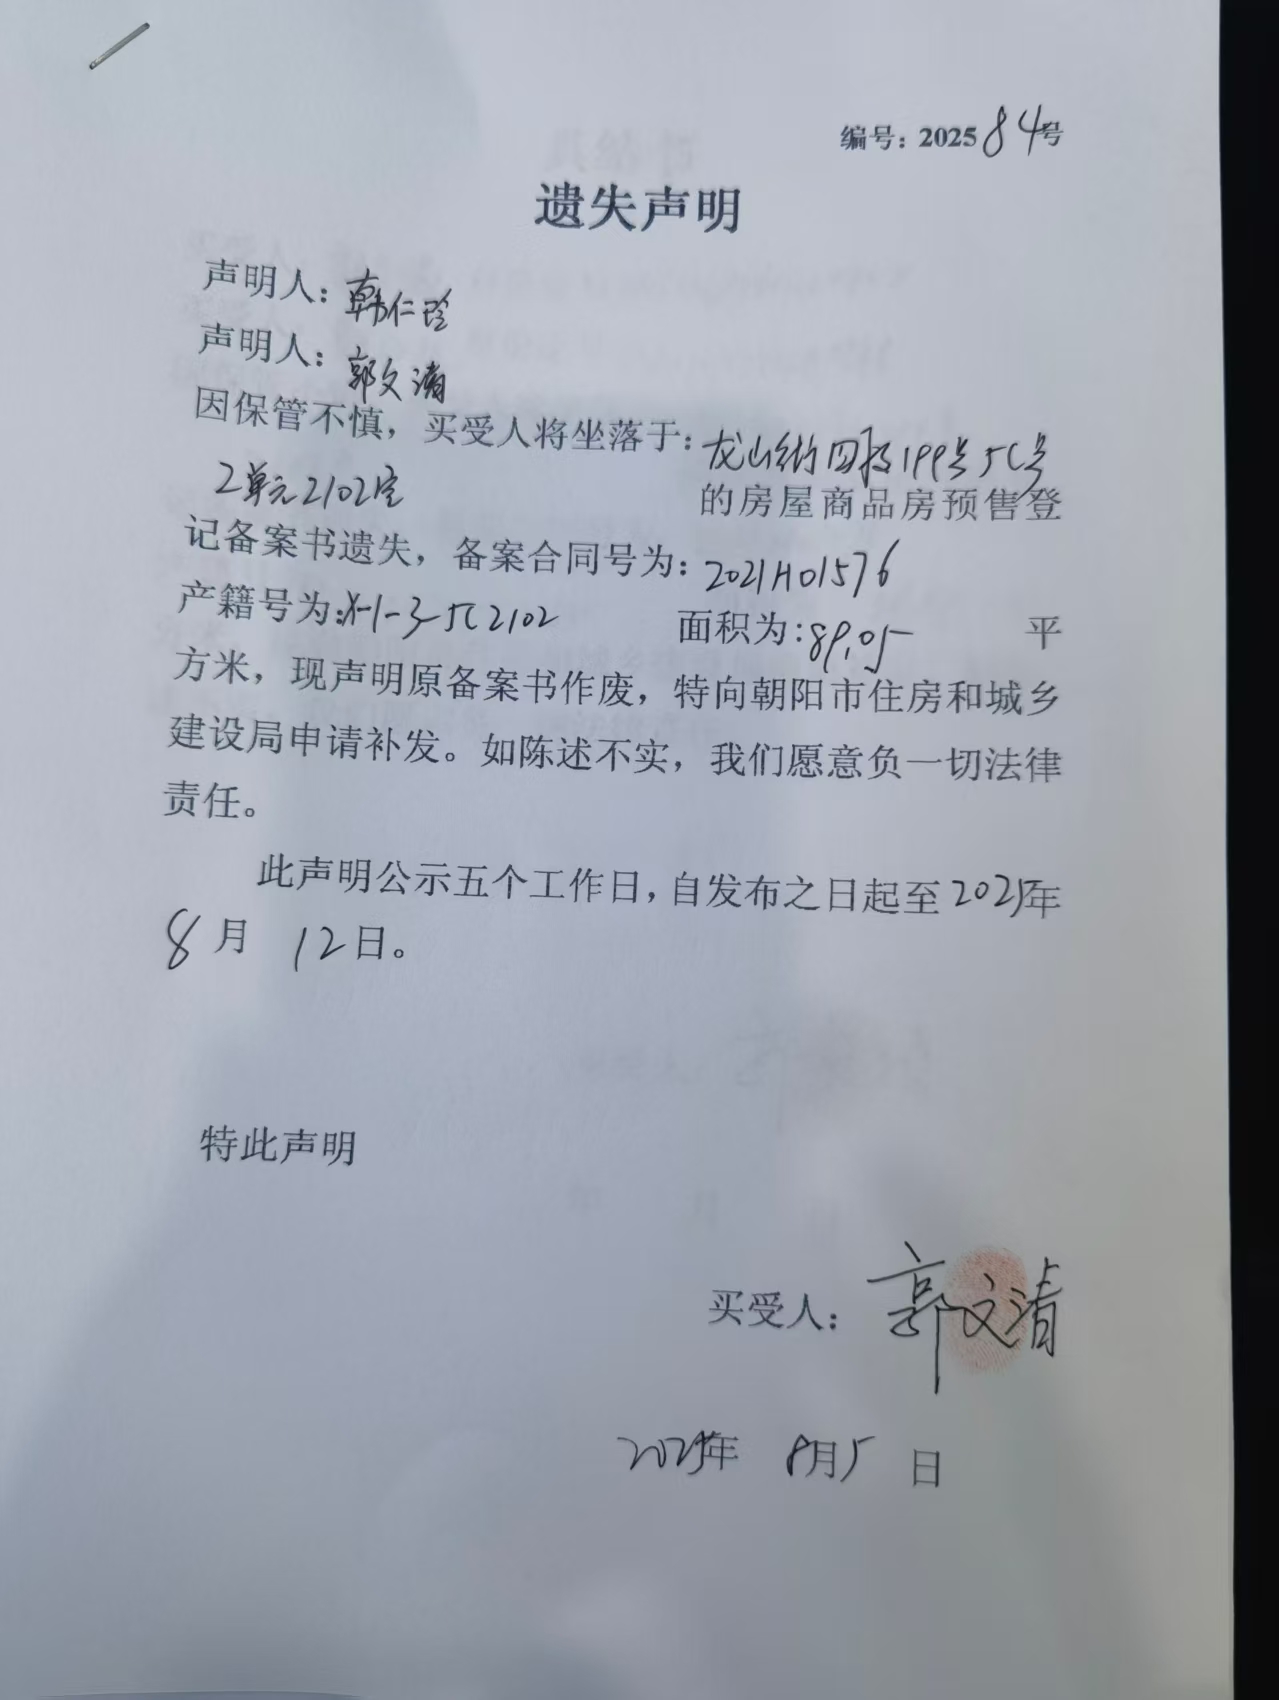 编号：202584号
遗失声明
声明人：韩仁玲
声明人：郭文清
因保管不慎，买受人将坐落于：龙山街四段199号5C号
2单元2102室 的房屋商品房预售登
记备案书遗失，备案合同号为：2021H01576
产籍号为:X-1-3-5C2102 面积为:89.05 平
方米，现声明原备案书作废，特向朝阳市住房和城乡
建设局申请补发。如陈述不实，我们愿意负一切法律
责任。
此声明公示五个工作日，自发布之日起至2025年
8月 12日。
特此声明
买受人：郭文清
2025年 8月5日